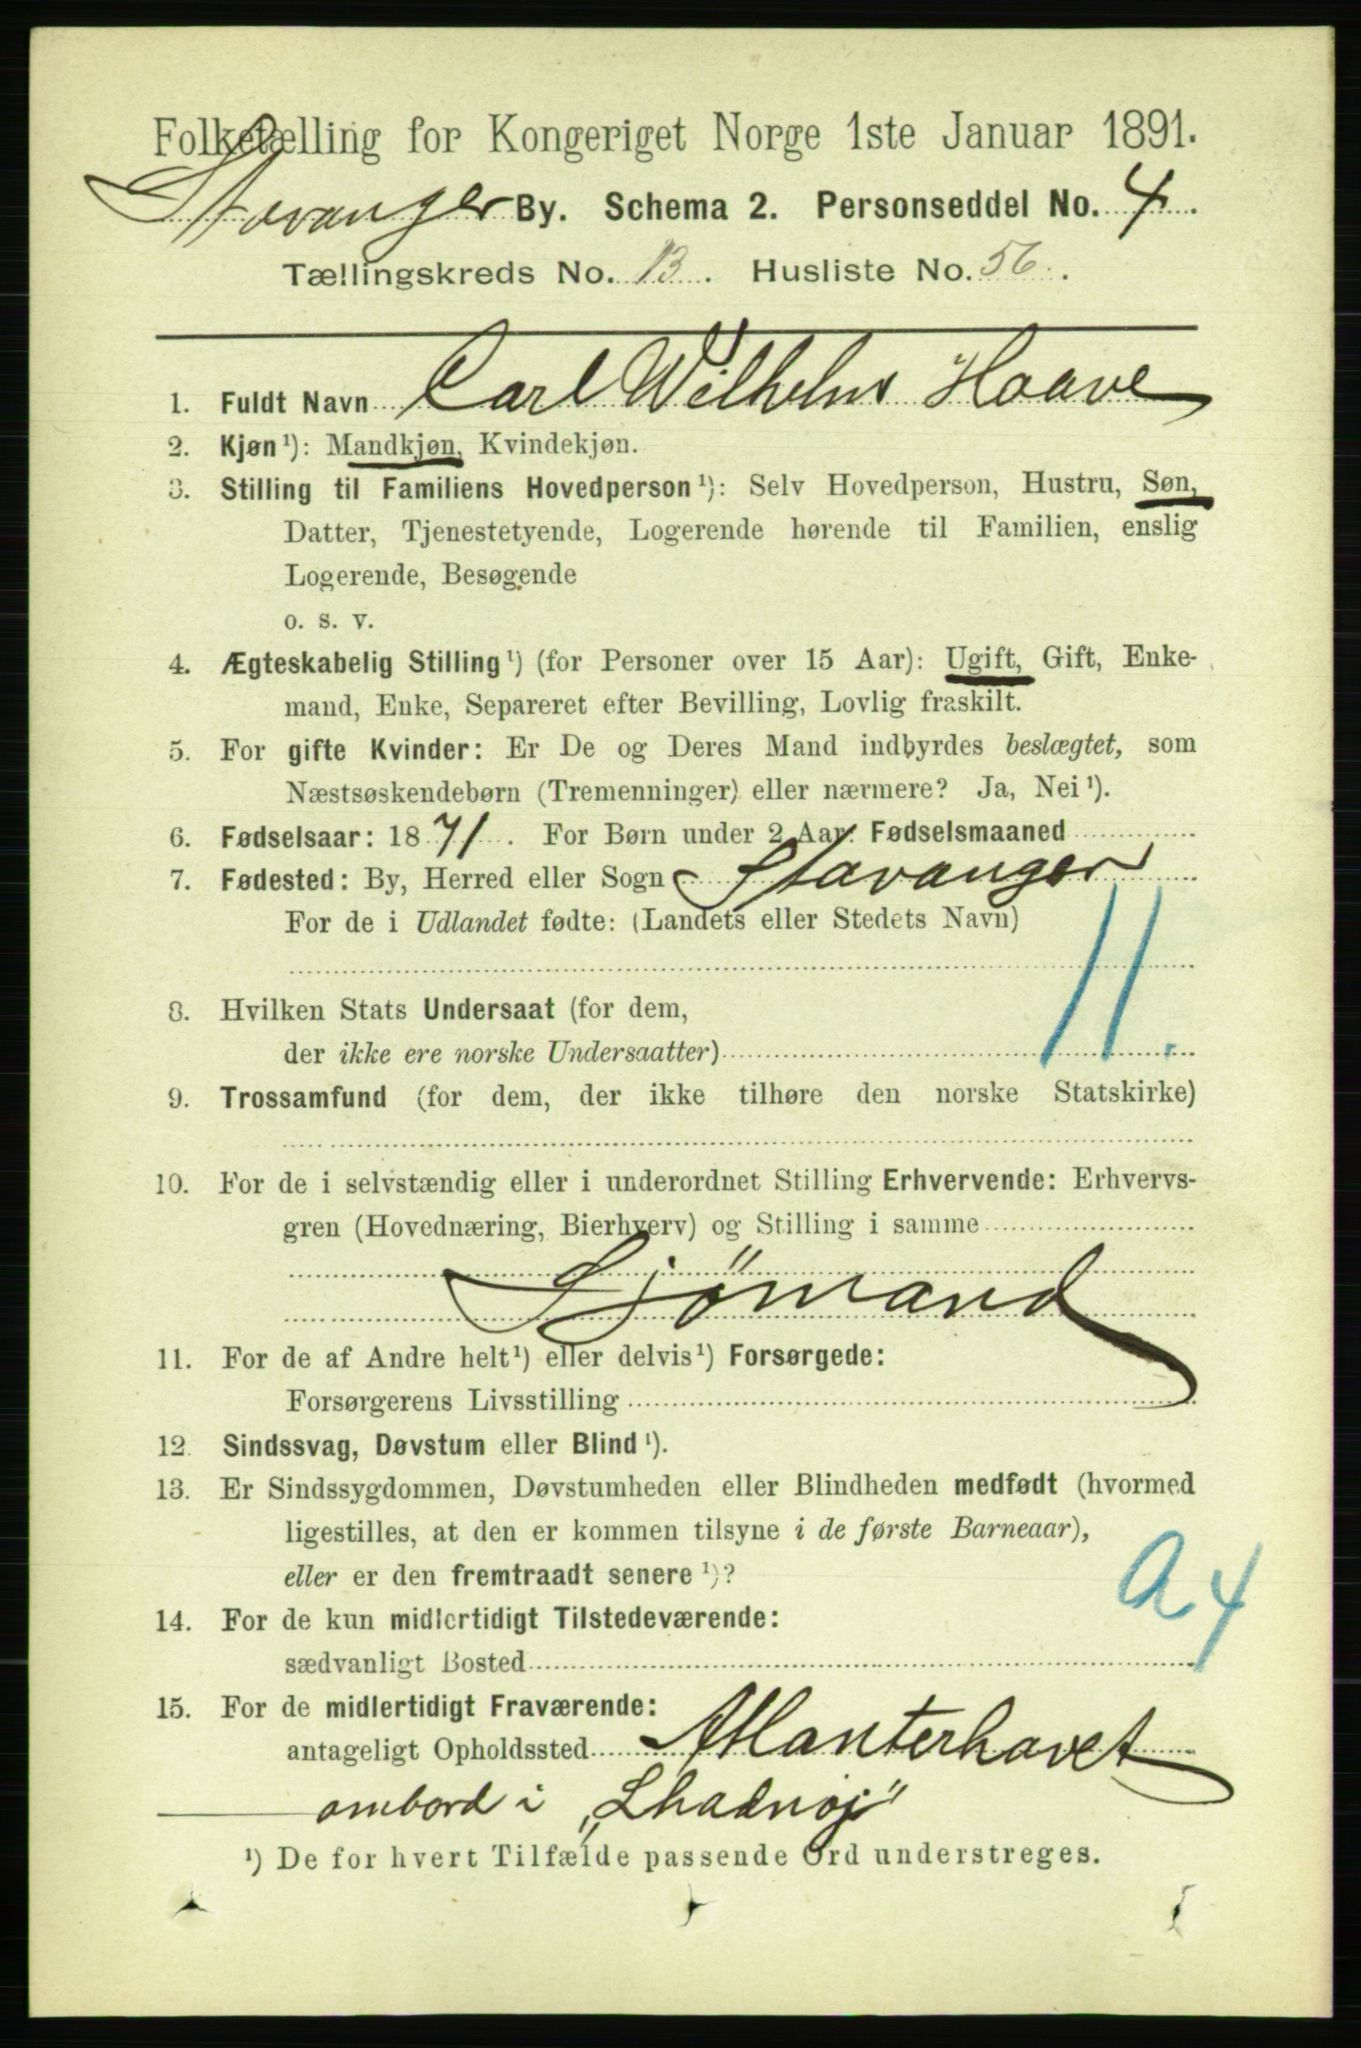 Folketælling for Kongeriget Norge 1ste Januar 1891.
Stavanger By. Schema 2. Personseddel No. 4.
Tællingskreds No. 13. Husliste No. 56.
1. Fuldt Navn Carl Wilhelm Haave
2. Kjøn ¹): Mandkjøn, Kvindekjøn.
3. Stilling til Familiens Hovedperson ¹): Selv Hovedperson, Hustru, Søn,
Datter, Tjenestetyende, Logerende hørende til Familien, enslig
Logerende, Besøgende
o. s. v.
4. Ægteskabelig Stilling ¹) (for Personer over 15 Aar): Ugift, Gift, Enke-
mand, Enke, Separeret efter Bevilling, Lovlig fraskilt.
5. For gifte Kvinder: Er De og Deres Mand indbyrdes beslægtet, som
Næstsøskendebørn (Tremenninger) eller nærmere? Ja, Nei ¹).
6. Fødselsaar: 1871. For Børn under 2 Aar: Fødselsmaaned
7. Fødested: By, Herred eller Sogn Stavanger
For de i Udlandet fødte: (Landets eller Stedets Navn)
11.
8. Hvilken Stats Undersaat (for dem,
der ikke ere norske Undersaatter)
9. Trossamfund (for dem, der ikke tilhøre den norske Statskirke)
10. For de i selvstændig eller i underordnet Stilling Erhvervende: Erhvervs-
gren (Hovednæring, Bierhverv) og Stilling i samme
Sjømand
11. For de af Andre helt ¹) eller delvis ¹) Forsørgede:
Forsørgerens Livsstilling
12. Sindssvag, Døvstum eller Blind ¹).
13. Er Sindssygdommen, Døvstumheden eller Blindheden medfødt (hvormed
ligestilles, at den er kommen tilsyne i de første Barneaar),
eller er den fremtraadt senere ¹)?
a 4
14. For de kun midlertidigt Tilstedeværende:
sædvanligt Bosted
15. For de midlertidigt Fraværende:
antageligt Opholdssted Atlanterhavet
ombord i
¹) De for hvert Tilfælde passende Ord understreges.